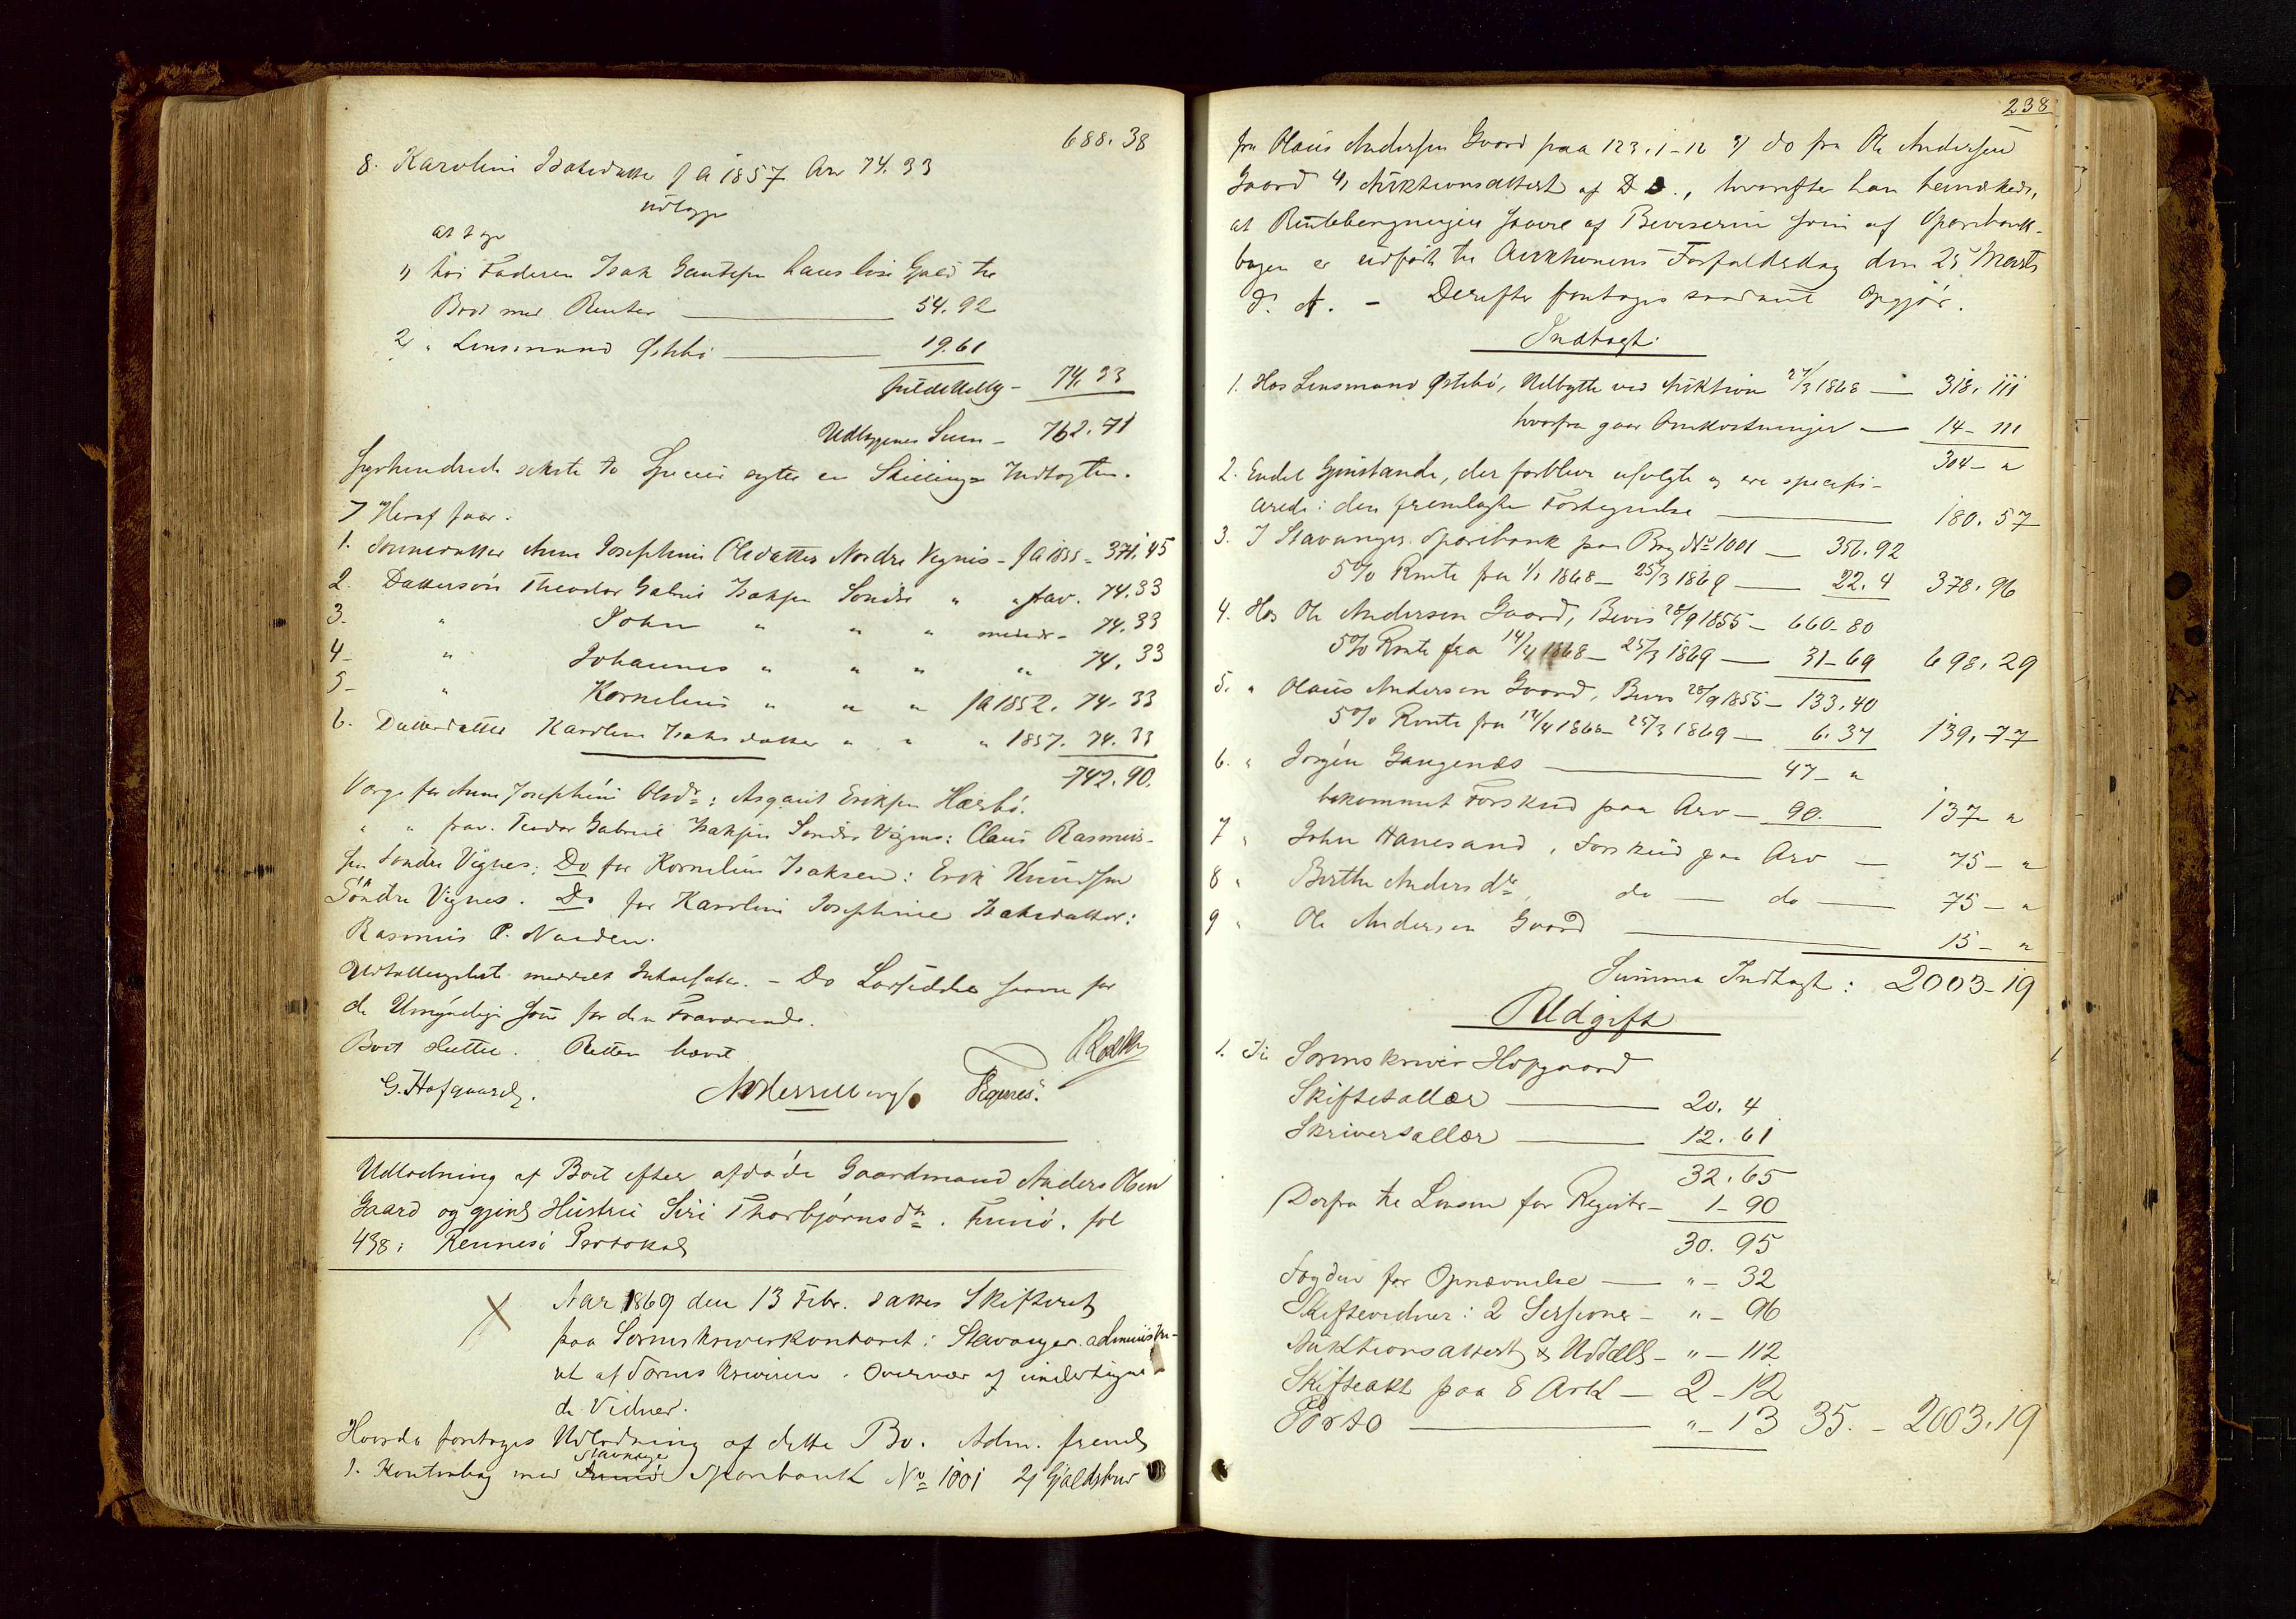 688. 38
8. Karolini Isaksdatter f A 1857 Arv 74. 33
udlagges
at tage
1) hos Faderen Isak Gautesen hans lise Gjæld til
Boet med Renter 54. 92
2) " Lensmand Østebø 19. 61
fuldestillig - 74. 33
Udlæggenes Sum - 762. 71
syvhundrede sekste to Species sytti en Skilling = Indtægten.
7 Heraf faar.
1. Sønnedatter Anne Josephine Olsdatter Nordre Vignes - f A 1855 - 371. 45
2. Dattersøn Theodor Gabriel Isaksen Søndre " " frav. 74. 33
3. " John " " " - 74. 33
4 - " Johannes " " " " 74. 33
5 - " Kornelius " " " f A 1852. 74. 33
6. Datterdatter Karoline Isaksdatter " " " 1857. 74. 33
742. 90.
Værge for Anne Josephine Olsdr: Asgaut Eriksen Hæsbø.
" " frav. Teodor Gabriel Isaksen Søndre Vignes: Claus Rasmus-
sen Søndre Vignes; Do for Kornelius Isaksen: Erik Knudsen
Søndre Vignes. Do for Karoline Josephine Isaksdatter:
Rasmus P. Naaden.
Udtællingsliste meddelt Inkassator. - Do Lodsedler saavel for
de Umyndige som for den Fraværende.
Boet sluttet. Retten hævet
G. Hofgaard. Vignes.
Udlodning af Boet efter afdøde Gaardmand Anders Olsen
Gaard og gjenl Hustrue Siri Thorbjørnsdtr. Finnø. fol
438 i Rennesø Protokol
X Aar 1869 den 13 Febr. sattes Skifteret
paa Sorenskriverkontoret i Stavanger administre-
ret af Sorenskriveren. Overvær af undertegne-
de Vidner.
Hvorda foretoges Udlodning af dette Bo. Adm. freml
1. Kontrabog med Stavanger Sparebank No 1001 2) Gjældsbrev
238
fra Olaus Andersen Gaard paa 123. 1 - 12 3) do fra Ole Andersen
Gaard 4) Auktionsattest af D. D., hvorefter han bemærkede,
at Renteberegningen saavel af Beviserne som af Sparebank-
bogen er udført til Auktionens Forfaldsdag den 25 Marts
d. A. - Derefter foretoges saadant Opgjør.
Indtægt:
1. Hos Lensmand Østebø, Udbytte ved Auktion 27/3 1868 — 318. 111
hvorfra gaar Omkostninger — 14 - 111
304 - "
2. Endel Gjenstande, der forblev usolgte og ere specifi-
cerede i den fremlagte Fortegnelse 180. 57
3. I Stavanger Sparebank paa Bog No 1001 — 356. 92
5% Rente fra 1/1 1868 - 25/3 1869 — 22. 4 378. 96
4. Hos Ole Andersen Gaard, Bevis 28/9 1855 - 660 - 80
5% Rente fra 14/4 1868 - 25/3 1869 — 31 - 69 698. 29
5. " Olaus Andersen Gaard, Bevis 28/9 1855 - 133. 40
5% Rente fra 14/4 1868 - 25/3 1869 — 6. 37 139. 77
6. " Jørgen Gangenæs — 47 - "
bekommet Forskud paa Arv — 90. 137 "
7 " John Hanesand, Forskud paa Arv — 75 - "
8 " Berthe Andersdtr, do — do — 75 - "
9 " Ole Andersen Gaard 15 - "
Summa Indtægt: 2003 - 19
Udgift
1. Til Sorenskriver Hofgaard
Skiftesallær — 20. 4
Skriversallær — 12. 61
32. 65
Derfra til Lensm for Registr - 1 - 90
30. 95
Fogden for Opnævnelse — " - 32
Skiftevidner: 2 Sessioner - " - 96
Auktionsattest & Udtælls - " - 112
Skifteakt paa 8 Ark — 2 - 12
Porto — " - 13 35. - 2003. 19